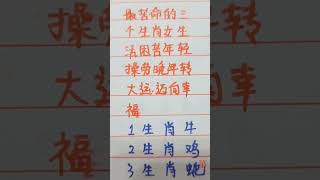 最苦命的三
个生肖女生
活困苦年轻
操劳晚年转
大运迈向幸
福
1生肖牛
2生肖鸡
3生肖蛇